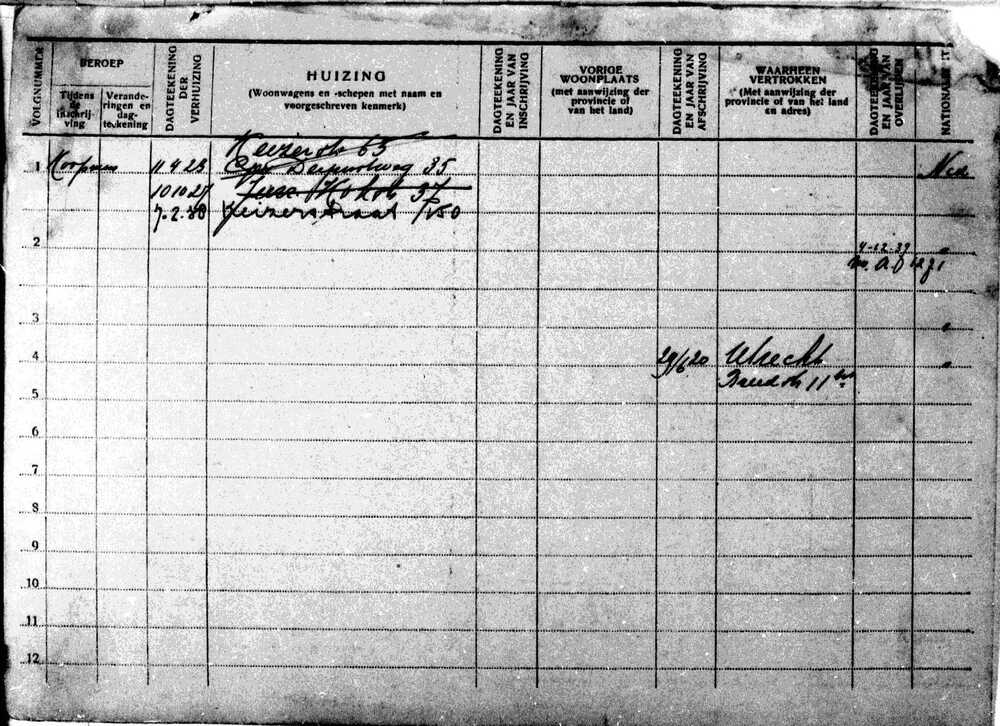 VOLGNUMMER
BEROEP
Tijdens de inschrijving
Veranderingen en dagteekening
DAGTEEKENING DER VERHUIZING
HUIZING
(Woonwagens en -schepen met naam en
voorgeschreven kenmerk)
DAGTEEKENING EN JAAR VAN INSCHRIJVING
VORIGE
WOONPLAATS
(met aanwijzing der
provincie of
van het land)
DAGTEEKENING EN JAAR VAN AFSCHRIJVING
WAARHEEN
VERTROKKEN
(Met aanwijzing der
provincie of van het land
en adres)
DAGTEEKENING EN JAAR VAN OVERLIJDEN
NATIONALITEIT
Keizerstr 65
1 Koopman 11 4 23 35 Ned
10 10 27 37
7.2.38 Keizerstraat 150
2 4-12-39 "
A
3 "
4 29/6 20 Utrecht "
11 bis
5
6
7
8
9
10
11
12